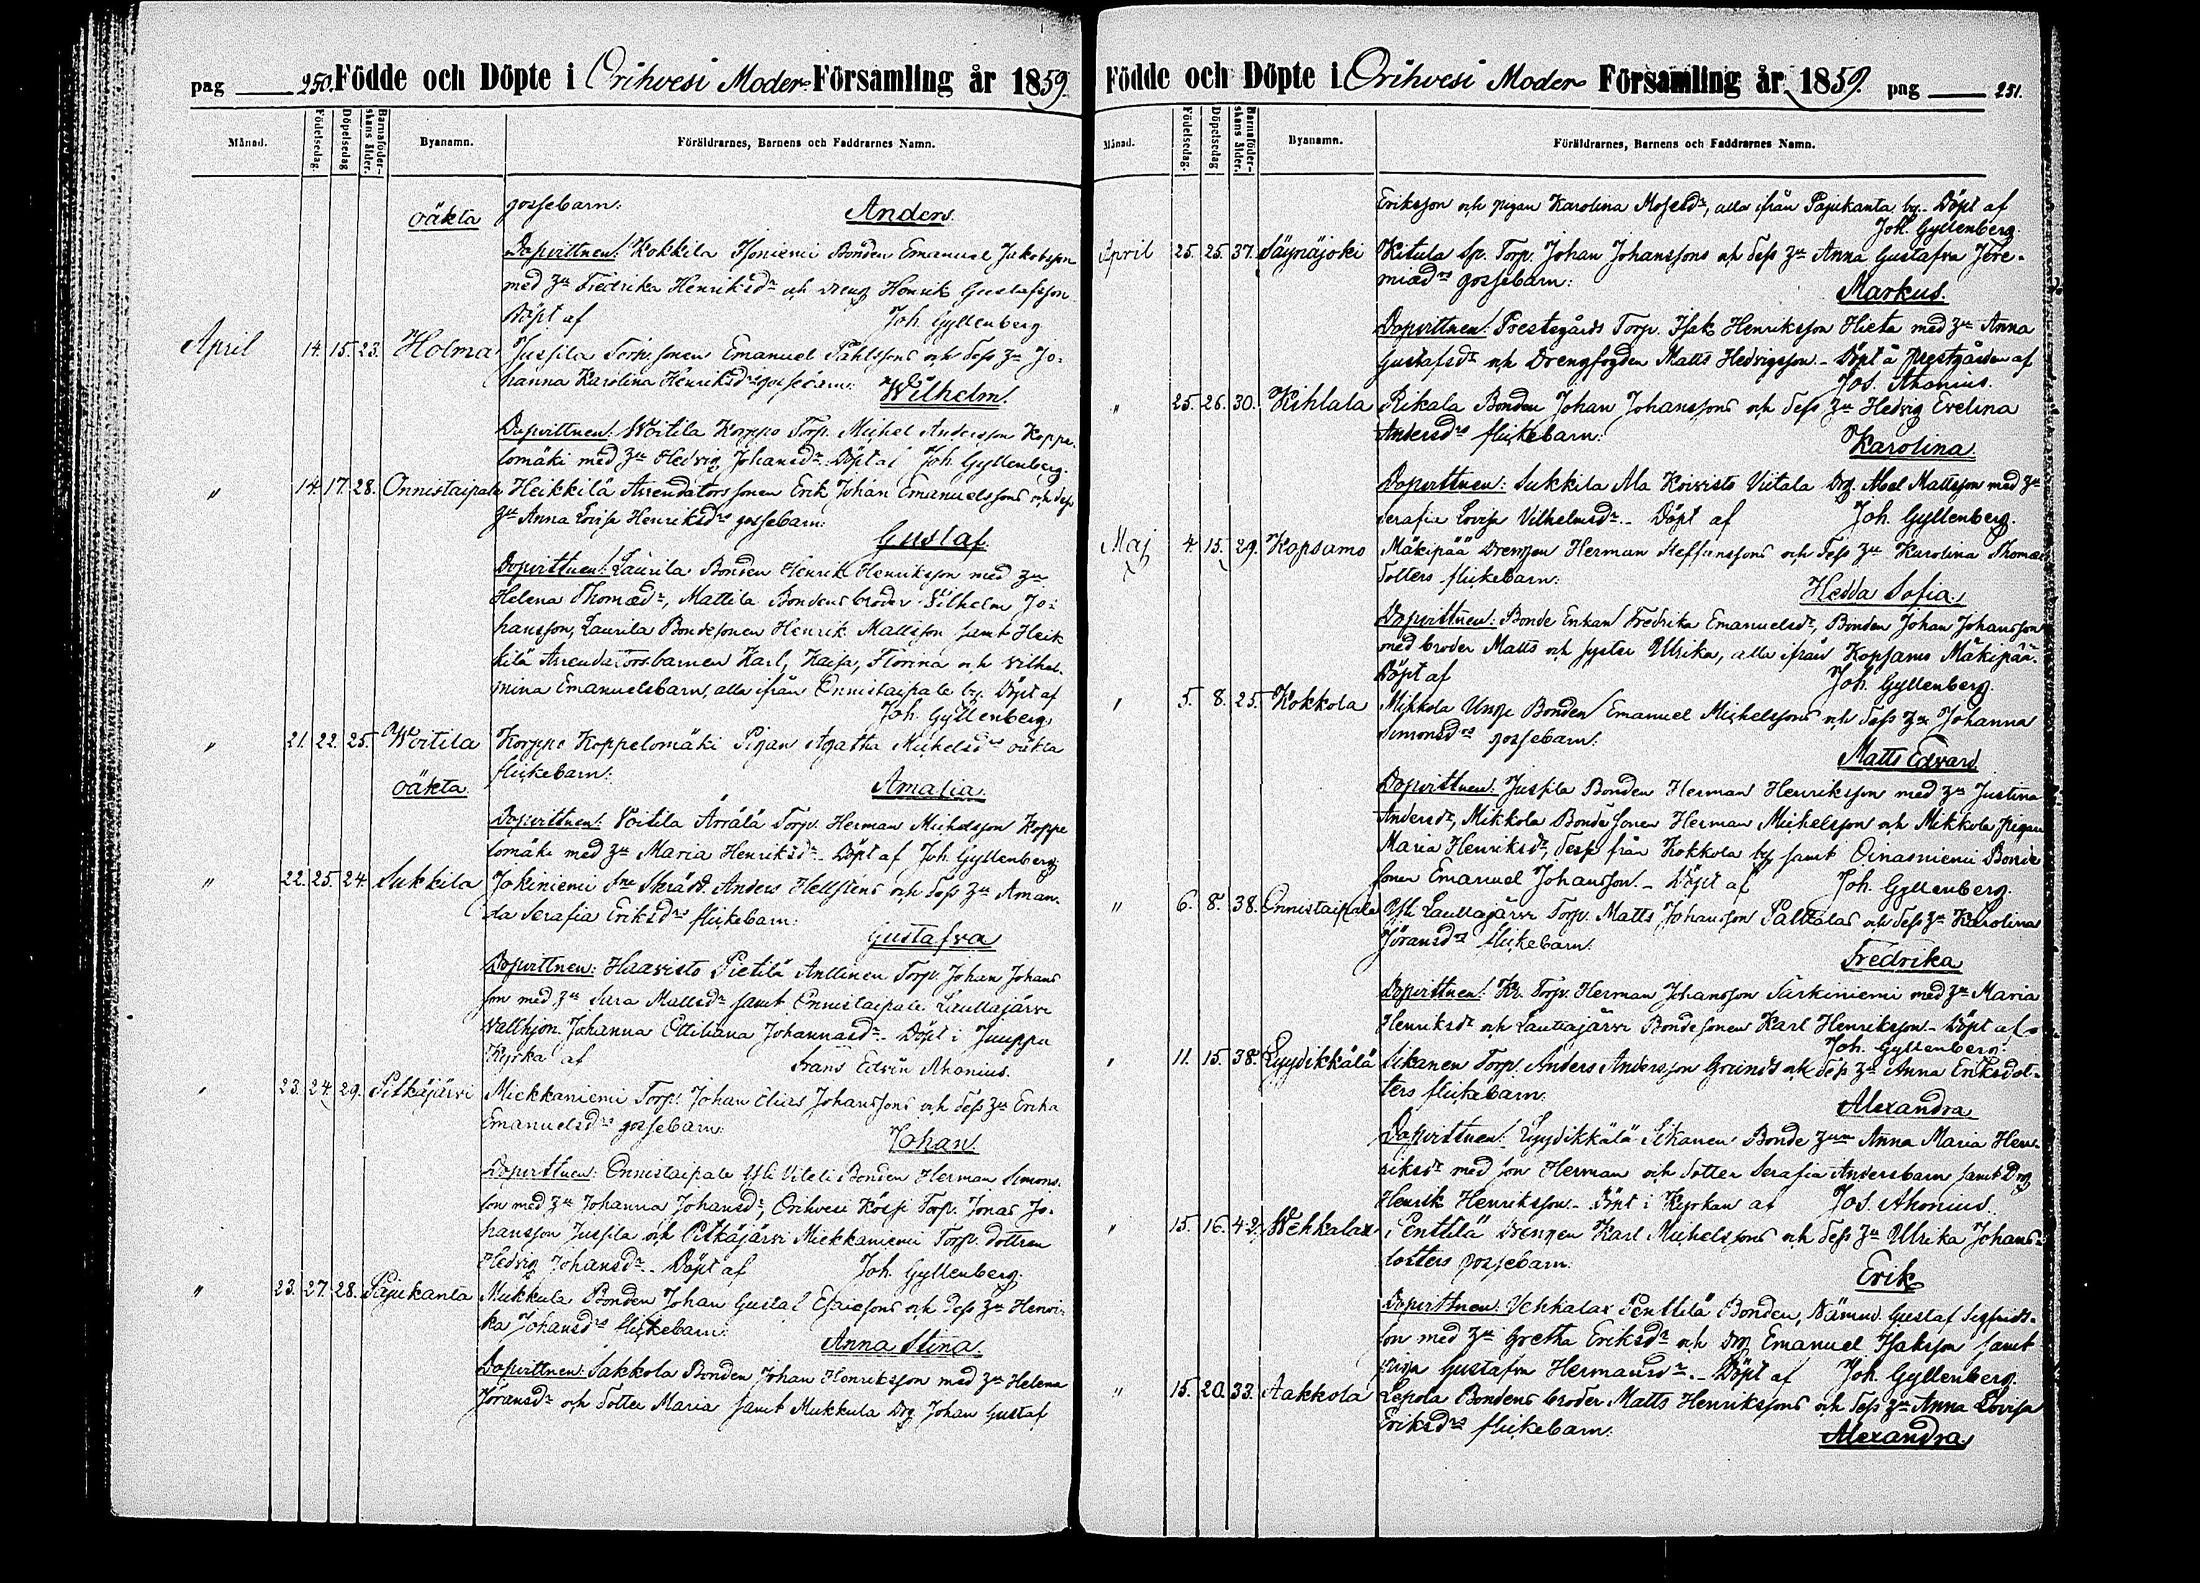 pag 250. Födde och Döpte i Orihvesi Moder Församling år 1859.
Månad. Födelsedag. Döpelsedag Barnaföder-skans ålder. Byanamn. Föräldrarnes, Barnens och Faddrarnes Namn.
oäkta gossebarn: Anders.
Dopvittnen: Kokkila Isoniemi Bonden Emanuel Jakobsson
med hu Fredrika Henriksdr och dreng Henrik Gustafsson
Döpt af Joh. Gyllenberg
April 14. 15. 23. Holma Jussila Torp. sonen Emanuel Påhlssons och dess hu Jo-
hanna Karolina Henriksdrs gossebarn: Wilhelm.
Dopvittnen: Woitila Korppo Torp. Michel Andersson Koppe-
lomäki med hu Hedvig Johansdr. Döpt af Joh. Gyllenberg.
" 14. 17. 28. Onnistaipale Heikkilä Arrendators sonen Erik Johan Emanuelssons och dess
hu Anna Lovisa Henriksdrs gossebarn:
Gustaf
Dopvittnen: Laurila Bonden Henrik Henriksson med hu
Helena Thomædr, Mattila Bondens broder Vilhelm Jo-
hansson, Laurila Bondesonen Henrik Mattsson samt Heik
kilä Arrendatorsbarnen Karl, Kaisa, Florina och Vilhel-
mina Emanuelsbarn, alla ifrån Onnistaipale by. Döpt af
Joh. Gyllenberg
" 21. 22. 25. Woitila Korppo Koppelomäki Pigan Agatha Michelsdrs oäkta
flickebarn:
oäkta Amalia.
Dopvittnen: Voitila Ärrälä Torp. Herman Michelsson Koppe
lomäki med hu Maria Henriksdr. Döpt af Joh. Gyllenberg.
" 22. 25. 24. Sukkila Jokiniemi Sne Skrädd. Anders Hellstens och dess hu Aman-
da Serafia Eriksdrs flickebarn:
Gustafva
Dopvittnen: Haavisto Pietilä Anttinen Torp. Johan Johans
son med hu Sara Mattsdr samt Onnistaipale Lauttajärvi
Vallhjon Johanna Ottiliana Johannasdr. Döpt i Juuppu
Kyrka af Frans Edvin Ahonius.
" 23. 24. 29. Pitkäjärvi Miekkaniemi Torp. Johan Elias Johanssons och dess hu Erika
Emanuelsdrs gossebarn:
Johan.
Dopvittnen: Onnistaipale Yli Vileli Bonden Herman Simons-
son med hu Johanna Johansdr, Orihvesi Kössi Torp. Jonas Jo-
hansson Jussila och Pitkäjärvi Miekkaniemi Torp. dottren
Hedvig Johansdr. Döpt af Joh. Gyllenberg.
" 23. 27. 28. Pajukanta Mukkula Bonden Johan Gustaf Esaiæsons och dess hu Henri-
ka Johansdrs flickebarn:
Anna Stina.
Dopvittnen: Sakkola Bonden Johan Henriksson med hu Helena
Jöransdr och dotter Maria samt Mukkula Drg Johan Gustaf
Födde och Döpte i Orihvesi Moder Församling år 1859. pag 251.
Månad. Födelsedag. Döpelsedag Barnaföder-skans ålder. Byanamn. Föräldrarnes, Barnens och Faddrarnes Namn.
Eriksson och pigan Karolina Mosesdr, alla ifrån Pajukanta by. Döpt af
Joh. Gyllenberg.
April 25. 25. 37. Säynäjoki Kitula Sp. Torp. Johan Johanssons och dess hu Anna Gustafva Jere-
miædrs gossebarn:
Markus.
Dopvittnen: Prestegårds Torp. Isak Henriksson Hieta med hu Anna
Gustafsdr och Drengfogden Matts Hedvigsson. Döpt å prestgården af
Jos. Ahonius.
" 25. 26. 30. Kihlala Rikala Bonden Johan Johanssons och dess hu Hedvig Evelina
Andersdrs flickebarn:
Karolina.
Dopvittnen: Sukkila Ala Koivisto Viitala Drg. Abel Mattsson med hu
Serafia Lovisa Vilhelmsdr. Döpt af Joh. Gyllenberg.
Maj 4. 15. 29. Kopsamo Mäkipää Drengen Herman Steffanssons och dess hu Karolina Thomæ
dotters flickebarn:
Hedda Sofia.
Dopvittnen: Bonde Enkan Fredrika Emanuelsdr, Bonden Johan Johansson
med broder Matts och syster Ulrika, alla ifrån Kopsamo Mäkipää.
Döpt af Joh. Gyllenberg.
" 5. 8. 25. Kokkola Mikkola Unge Bonden Emanuel Michelssons och dess hu Johanna
Simonsdrs gossebarn:
Matts Edvard
Dopvittnen: Jussila Bonden Herman Henriksson med hu Justina
Andersdr, Mikkola Bondesonen Herman Michelsson och Mikkola pigan
Maria Henriksdr, dess från Kokkola by samt Oinasniemi Bonde
sonen Emanuel Johansson. Döpt af Joh. Gyllenberg.
" 6. 8. 38. Onnistaipale Yli Lauttajärvi Torp. Matts Johansson Palttalas och dess hu Karolina
Jöransdrs flickebarn:
Fredrika
Dopvittnen: Kr. Torp. Herman Johansson Särkiniemi med hu Maria
Henriksdr och Lauttajärvi Bondesonen Karl Henriksson. Döpt af
Joh. Gyllenberg.
" 11. 15. 38. Lyydikkälä Sikanen Torp. Anders Andersson Grunds och dess hu Anna Eriksdot-
ters flickebarn:
Alexandra
Dopvittnen: Lyydikkälä Sikanen Bonde hun Anna Maria Hen-
riksdr med son Herman och dotter Serafia Andersbarn samt Drg
Henrik Henriksson. Döpt i Kyrkan af Jos. Ahonius.
" 15. 16. 42. Wehkalax Penttilä Drengen Karl Michelssons och dess hu Ulrika Johans-
dotters gossebarn:
Erik
Dopvittnen: Vehkalax Penttilä Bonden, Nämnd. Gustaf Sigfrids-
son med hu Gretha Eriksdr och Drg Emanuel Isaksson samt
Gustafva Hermansdr. Döpt af Joh. Gyllenberg.
" 15. 20. 33. Aakkola Lepola Bondens broder Matts Henrikssons och dess hu Anna Lovisa
Eriksdrs flickebarn:
Alexandra